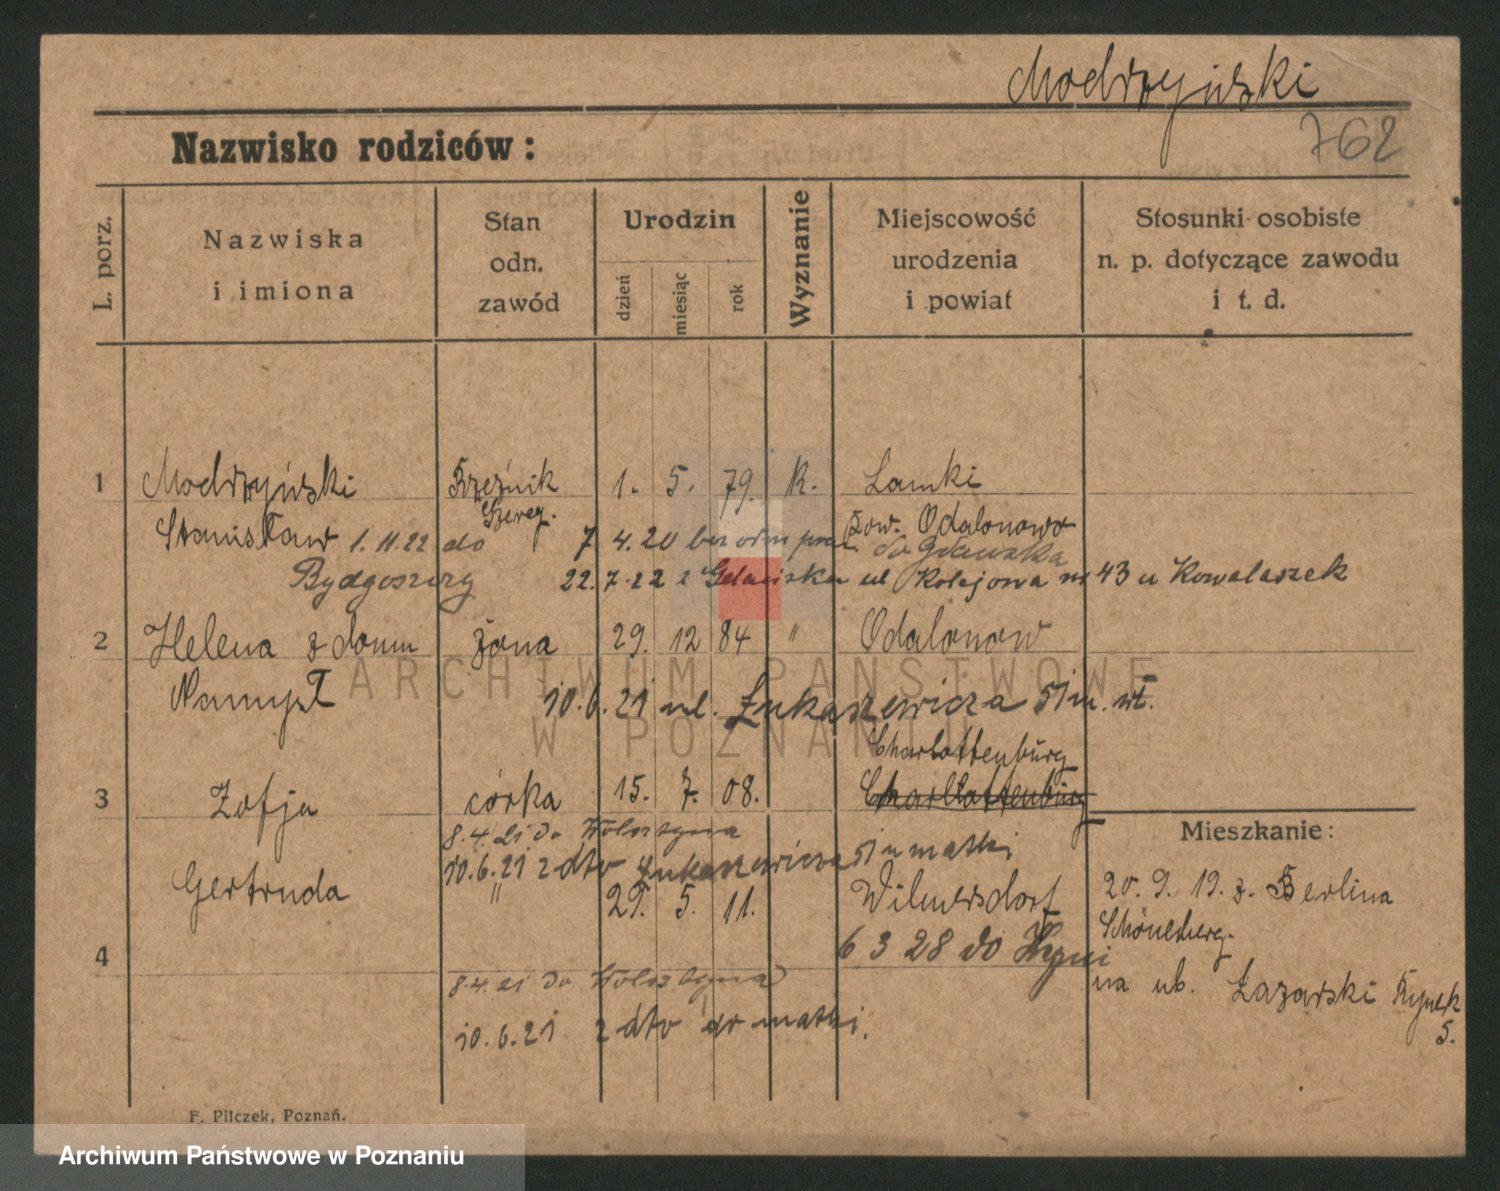 Modrzyński
762
Nazwisko rodziców:
L. porz.
Nazwiska
i imiona
Stan
odn.
zawód
Urodzin
dzień
miesiąc
rok
Wyznanie
Miejscowość
urodzenia
i powiat
Stosunki osobiste
n. p. dotyczące zawodu
i t. d.
1 Modrzyński Rzeźnik 1. 5. 79. K. Lamki
Szereg.
Stanisław 1.11.22 do 7 4.20 bez do Gdańska pow. Odalonowo
Bydgoszczy 22.7.22 z Gdańska ul Kolejowa nr 43 u Kowalaszek
2 Helena z domu żona 29. 12 84 " Odalonow
Namysł 10.6.21 ul. Łukaszewicza 51 m. wł.
Charlottenburg
3 Zofja córka 15. 7. 08. Charlottenburg
8.4.21 do Wolsztyna
10.6.21 z dto Łukaszewicza 51 u matki
Gertruda " 29. 5. 11. Wilmersdorf
6 3 28 do
4
8.4.21 do Wolsztyna
10.6.21 z dto do matki.
Mieszkanie:
20. 9. 19. z. Berlina
Schöneberg.
na ub. Łazarski Rynek
5.
F. Pilczek, Poznań.
ARCHIWUM PAŃSTWOWE
W POZNANIU
Archiwum Państwowe w Poznaniu